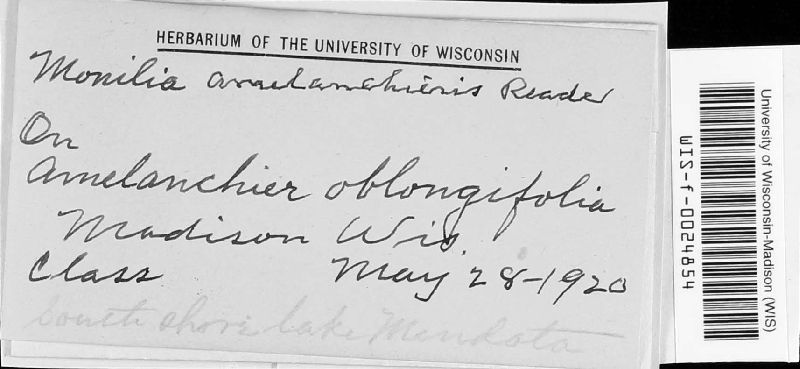 HERBARIUM OF THE UNIVERSITY OF WISCONSIN
Monilia amelanchieris Reade
On
Amelanchier oblongifolia
Madison Wis.
Class May 28-1920
South shore lake Mendota
University of Wisconsin-Madison (WIS)
WIS-f-0024854